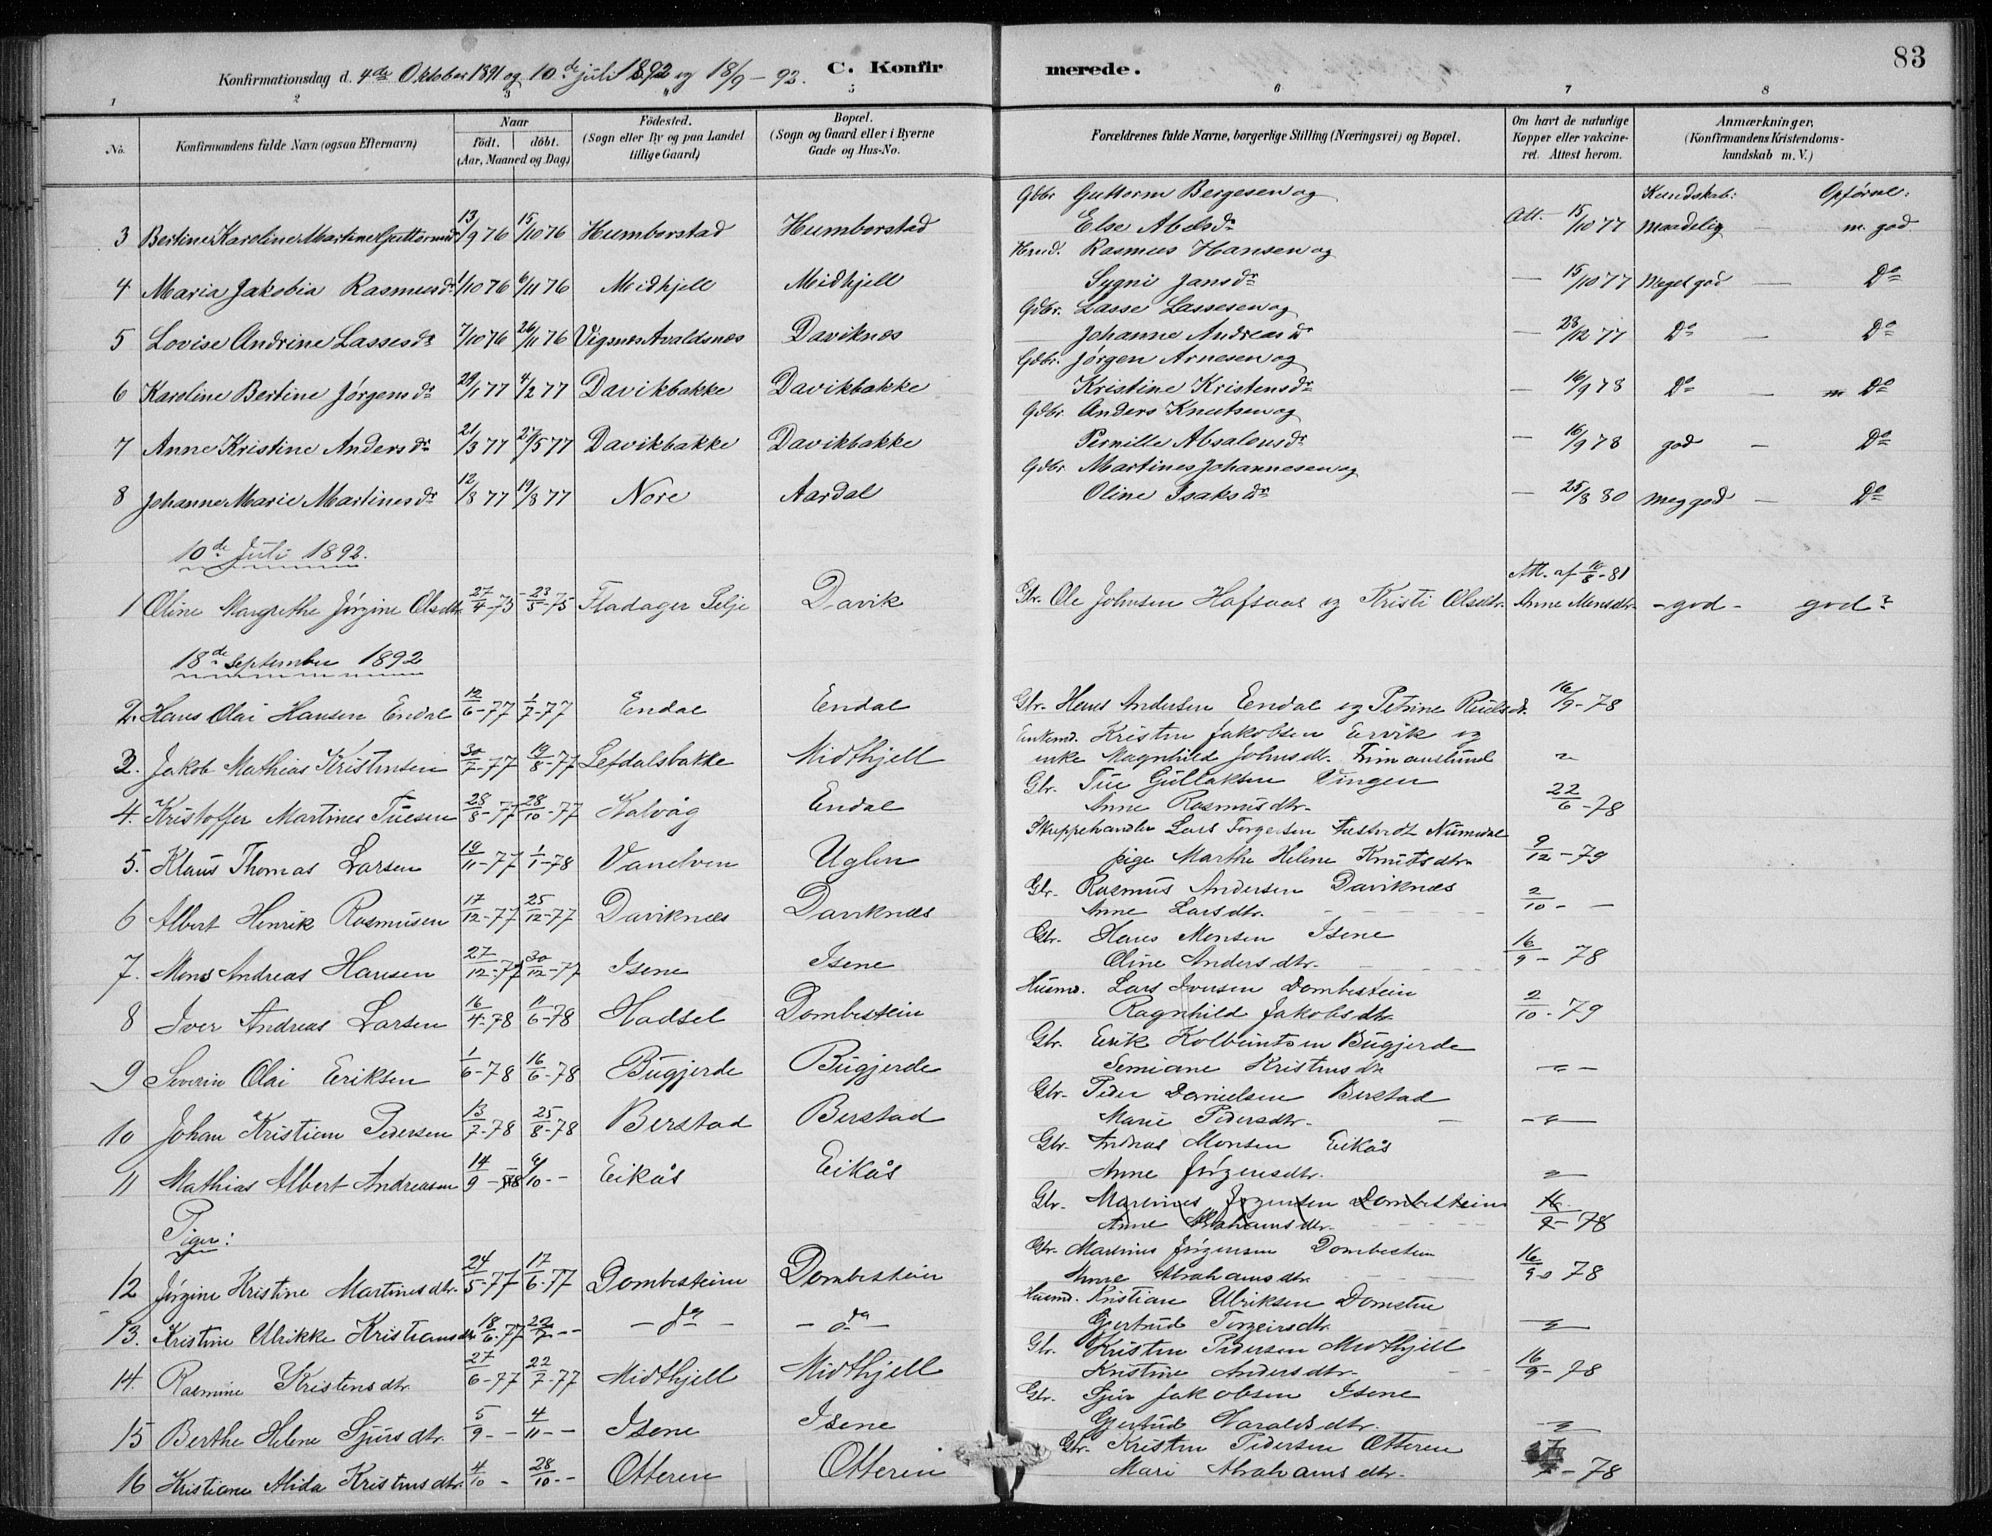 83
Konfirmationsdag d. 4de Oktober 1891 og 10de juli 1892 og 18/9 - 92. C. Konfirmerede.
1 2 3 4 5 6 7 8
No. Konfirmandens fulde Navn (ogsaa Efternavn) Naar født. døbt. (Aar, Maaned og Dag) Fødested. (Sogn eller By og paa Landet tillige Gaard) Bopæl. (Sogn og Gaard eller i Byerne Gade og Hus-No. Forældrenes fulde Navne, borgerlige Stilling (Næringsvei) og Bopæl. Om havt de naturlige Kopper eller vakcineret. Attest herom. Anmærkninger, (Konfirmandens Kristendomskundskab m. V.)
Kundskab: Opførsel:
Gdbr Guttorm Bergesen og
3 Bertine Karoline Martine Guttormsdr 13/9 76 15/10 76 Humborstad Humborstad Else Abelsdr Att. 15/10 77 Maadelig — m. god
Husmd. Rasmus Hansen og
4 Maria Jakobia Rasmusdr 1/10 76 6/11 76 Midhjell Midhjell Sygni Jansdr — 15/10 77 Meget god — Do
Gdbr. Lasse Lassesen og
5 Lovise Andrine Lassesdr 7/10 76 26/11 76 Vigsnes Avaldsnes Daviknes Johanne Andreasdr — 28/12 77 Do Do
Gdbr. Jørgen Arnesen og
6 Karoline Bertine Jørgensdr 29/1 77 4/2 77 Davikbakke Davikbakke Kristine Kristensdr — 16/9 78 Do — Do
Gdbr. Anders Knutsen og
7 Anne Kristine Andersdr 21/3 77 27/5 77 Davikbakke Davikbakke Pernille Absalonsdr — 16/9 78 god — Do
Gdbr Martines Johannesen og
8 Johanne Marie Martinesdr 12/8 77 19/8 77 Nore Aardal Oline Isaksdr — 25/8 80 meg god — Do
10de Juli 1892.
Att. af 10/8-81
1 Oline Margrethe Jørgine Olsdtr 27/4-75 23/5-75 Fladager Selje Davik Gbr. Ole Johnsen Hafsaas og Kristi Olsdtr. Anne Monsdtr. - god - god?
18de September 1892
2. Hans Olai Hansen Endal 12/6-77 1/7-77 Endal Endal Gbr. Hans Andersen Endal og Petrine 16/9-78
Enkemd. Kristen Jakobsen Ervik og
3. Jakob Mathias Kristensen 30/7-77 19/8-77 Lefdalsbakke Midthjell enke Magnhild Johnsdt. Frimanslund
Gbr. Tue Gullaksen Vingen
4. Kristoffer Martines Tuesen 28/8-77 28/10-77 Kalvåg Endal Anne Rasmusdtr. 22/6-78
Skuppehandler Lars Torgersen Numedal
5. Klaus Thomas Larsen 19/11-77 1/1-78 Vanelven Uglen pige Marthe Helene Knutsdtr. 9/12-79
Gbr. Rasmus Andersen Daviknæs
6 Albert Henrik Rasmusen 17/12-77 25/12-77 Daviknæs Daviknæs Anne Larsdtr. 2/10 - —
Gbr. Hans Monsen Isene
7. Mons Andreas Hansen 27/12-77 30/12-77 Isene Isene Oline Andersdtr. 16/9-78
Husmd. Lars Iversen Dombestein
8 Iver Andreas Larsen 16/4-78 11/6-78 Hadsel Dombestein Ragnhild Jakobsdtr. 2/10-79
Gbr. Erik Kolbeintsen Bugjerde
9 Severin Olai Eriksen 1/6-78 16/6-78 Bugjerde Bugjerde Semiane Kristensdtr
Gbr. Peder Danielsen Berstad
10 Johan Kristian Pedersen 13/7-78 25/8-78 Berstad Berstad Marie Pedersdtr.
Gbr. Andreas Monsen Eikås
11 Mathias Albert Andreasen 14/9-78 6/10 - - Eikås Eikås Anne Jørgensdtr.
Gbr. Martines Jørgensen Dombestein
Piger: Anne Abrahamsdtr. 16/9-78
Gbr. Martines Jørgensen Dombestein
12 Jørgine Kristine Martinesdtr. 24/5-77 17/6-77 Dombestein Dombestein Anne Abrahamsdtr. 16/9-78
Husmd. Kristian Ulriksen Domsten
13. Kristine Ulrikke Kristiansdtr 18/6-77 22/7 - - - do - - do - Gjertrud Torgeirsdtr.
Gbr. Kristen Pedersen Midthjell
14. Rasmine Kristensdtr. 27/6-77 22/7-77 Midthjell Midthjell Kristine Andersdtr. 16/9-78
Gbr. Sjur Jakobsen Isene
15 Berthe Helene Sjursdtr. 5/9 - - 4/11 - - Isene Isene Gjertrud Haraldsdtr.
Gbr. Kristen Pedersen Otteren
16 Kristiane Alida Kristensdtr. 4/10 - 28/10 - - Otteren Otteren Mari Abrahamsdtr. - 78